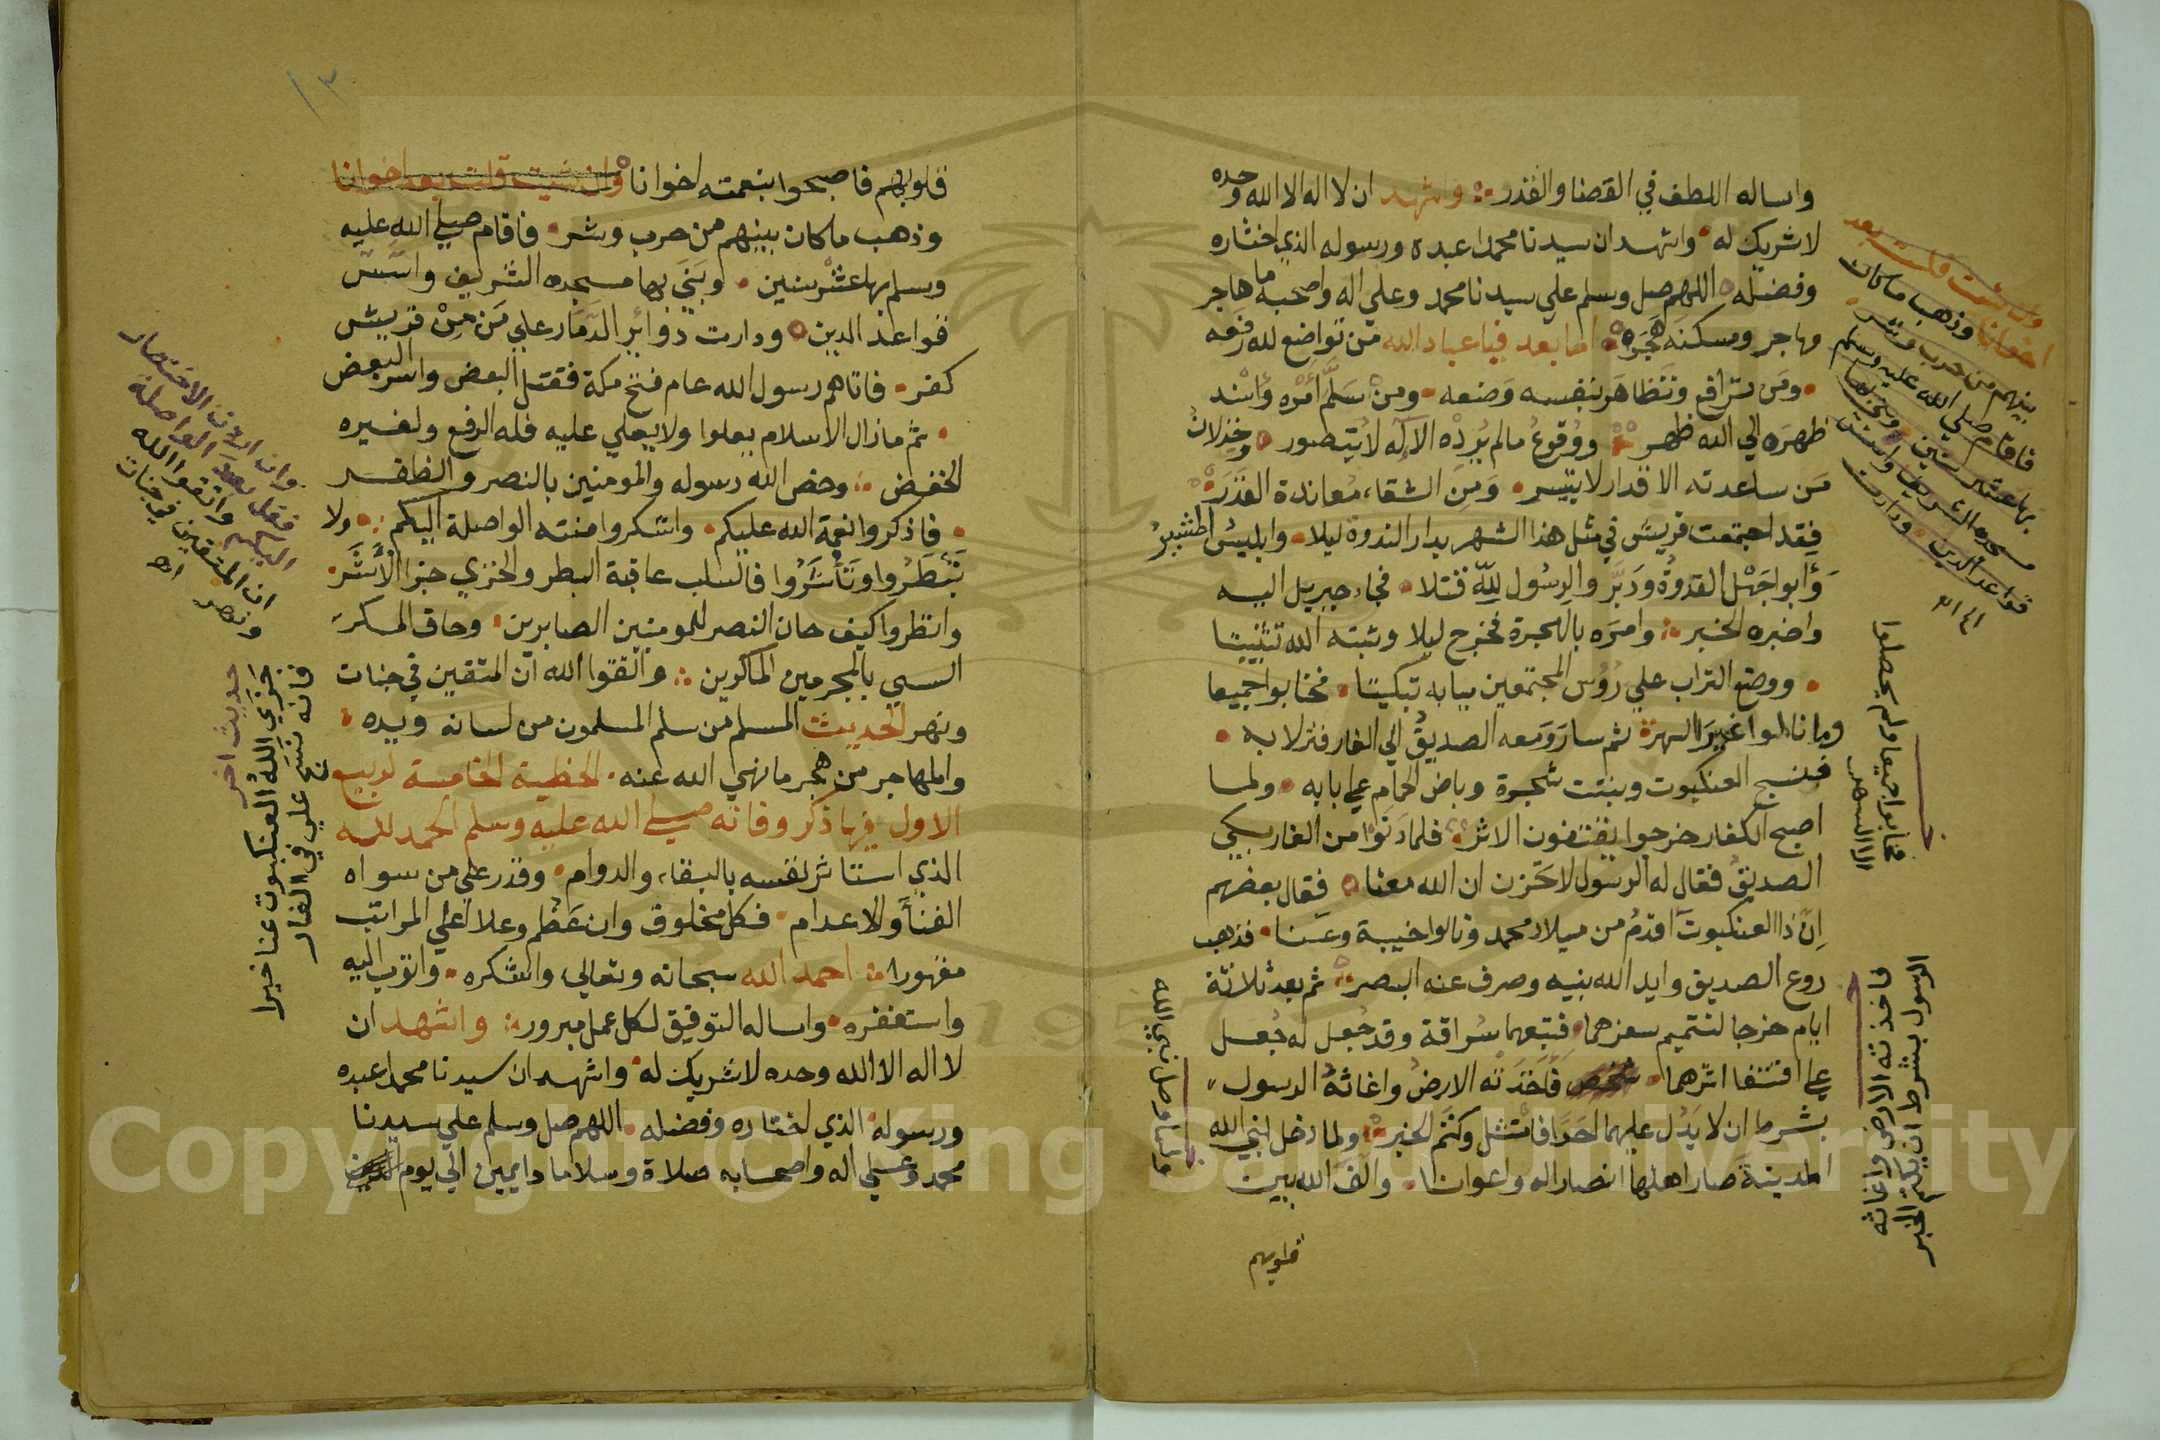 واساله اللطف في القضا والقدر واشهد ان لا اله الا الله وحده
لا شريك له واشهد ان سيدنا محمدا عبده ورسوله الذي اختاره
وفضله اللهم صل وسلم علي سيدنا محمد وعلي اله واصحبه ما هاجر
مهاجر ومسكنه هجره اما بعد فيا عباد الله من تواضع لله رفعه
ومن ترافع وتظاهر بنفسه وضعه ومن سلم امره واسند
ظهره الي الله ظهر ووقوع ما لم يرده الاله لا يتصور وخذلان
من ساعدته الاقدار لا يتيسر ومن الشقاء معاندة القدر
فقد اجتمعت قريش في مثل هذا الشهر بدار الندوة ليلا وابليس المشير
وابو اجهل القدوة ودبر والرسول لله قتلا فجاء جبريل اليه
واخبره الخبر وامره بالهجرة فخرج ليلا وثبته الله تثبيتا
ووضع التراب علي رؤس المجتمعين ببابه تبكيتا فخابوا جميعا
وما نالوا غير السهرة ثم سار ومعه الصديق الي الغار فنزلا به
فنسج العنكبوت ونبتت شجرة وباض الحمام علي بابه ولما
اصبح الكفار خرجوا يقتفون الاثر فلما دنوا من الغار بكي
الصديق فقال له الرسول لا تحزن ان الله معنا فقال بعضهم
ان ذا العنكبوت اقدم من ميلاد محمد ونالوا خيبة وعنا فذهب
روع الصديق وايد الله بنيه وصرف عنه البصر ثم بعد ثلاثة
ايام خرجا لتتميم سفرهما فتبعهما سراقة وقد جعل له جعل
علي اقتفا اثرهما فاخذته الارض واغاثه الرسول
بشرط ان لا يدل عليهما احدا فامتثل وكتم الخبر ولما دخل لنبي الله
المدينة صار اهلها انصارا له واعوانا والف الله بين
قلوبهم
وان شئت قلت بعد
اخوانا وذهب ما كان
بينهم من حرب وشر
فاقام صلي الله عليه وسلم
بها عشر سنين وبني بها
مسجده الشريف واسس
قواعد الدين ودارت
فخابوا جميعا ولم يحصلوا
الا السهر
فاخذته الارض واغاثه
الرسول بشرط ان يكتم الخبر
ولما وصل نبي الله
قلوبهم فاصبحوا بنعمته اخوانا وان شيت قلت بعد اخوانا
وذهب ما كان بينهم من حرب وشر فاقام صلي الله عليه
وسلم بها عشر سنين وبني بها مسجده الشريف واسس
قواعد الدين ودارت دوائر الدمار علي من من قريش
كفر فاتاهم رسول الله عام فتح مكة فقتل البعض واسر البعض
ثم مازال الاسلام يعلوا ولا يعلي عليه فله الرفع ولغيره
الخفض وخص الله رسوله والمومنين بالنصر والظفر
فاذكروا نعمة الله عليكم واشكروا منته الواصلة اليكم ولا
تبطروا وتأشروا فالسلب عاقبة البطر والخزي جزا الأشر
وانظروا كيف حان النصر للمومنين الصابرين وحاق المكر
السيي بالمجرمين الماكرين واتقوا الله ان المتقين في جنات
ونهر الحديث المسلم من سلم المسلمون من لسانه ويده
والمهاجر من هجر ما نهي الله عنه الخطبة الخامسة لربيع
الاول فيها ذكر وفاته صلي الله عليه وسلم الحمد لله
الذي استاثر نفسه بالبقاء والدوام وقدر علي من سواه
الفنا والاعدام فكل مخلوق وان عظم وعلا اعلي المراتب
مقهورا احمد الله سبحانه وتعالي واشكره واتوب اليه
واستغفره واساله التوفيق لكل عمل مبرور واشهد ان
لا اله الا الله وحده لا شريك له واشهد ان سيدنا محمدا عبده
ورسوله الذي اختاره وفضله اللهم صل وسلم علي سيدنا
محمد وعلي اله واصحابه صلاة وسلاما دايمين الي يوم
وان اردت الاختصار
فقل بعد الواصلة
اليكم واتقوا الله
ان المتقين في جنات
ونهر اه
حديث اخر
جزي الله العنكبوت عنا خيرا
فانه نسج علي في الغار
١٣
Copyright © King Saud University
1957